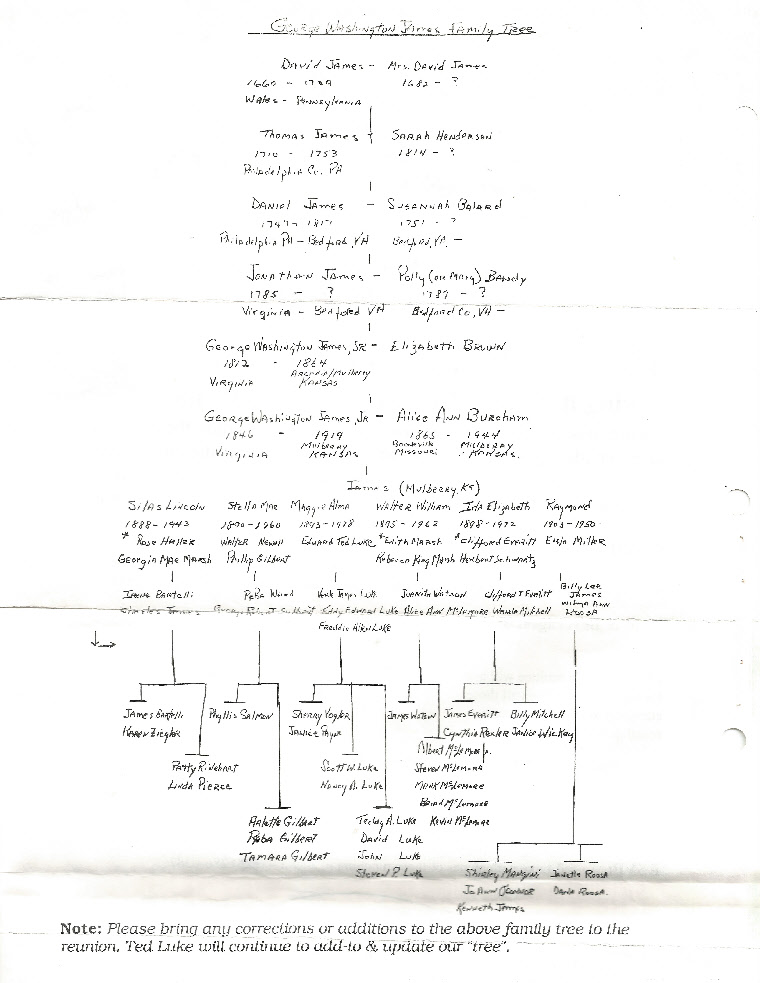 George Washington James Family Tree
David James - Mrs. David James
1660 - 1682 - ?
Wales - Pennsylvania
Thomas James Sarah Henderson
1710 - 1753 1814 - ?
Philadelphia Co. PA
Daniel James - Susannah
1751 - ?
Philadelphia PA - Bedford, VA Bedford, VA. -
Jonathan James - Polly (or Mary) Bandy
1785 - ? 1789 - ?
Virginia - Bedford VA Bedford Co, VA -
George Washington James, Sr - Elizabeth Brown
1812 - 1864
Arcadia/Mulberry
Virginia Kansas
George Washington James, Jr - Alice Ann Burcham
1846 - 1919 1865 - 1944
Mulberry Mulberry
Virginia Kansas Missouri Kansas.
James (Mulberry, KS)
Silas Lincoln Stella Mae Maggie Alma Walter William Ida Elizabeth Raymond
1888-1943 1890-1960 1893-1978 1895-1962 1898-1972 1903-1950
* Rose Haller Walter Newell Edward Ted Luke * Edith Marsh * Clifford Everitt Elsia Miller
Georgia Mae Marsh Phillip Gilbert Rebecca King Marsh Herbert Schwartz
Irene Bartelli Reba Wood Jaunita Watson Clifford J Everitt Billy Lee James
Charles James George Robert Gilbert Edward Luke Alice Ann McLemore Wanda Mitchell Wilma Ann Roosa
Freddie Luke
James Bartelli Phyllis Salmon Sherry Vogler James Watson James Everitt Billy Mitchell
Karen Ziegler Janice Cynthia Janice
Albert McLemore Jr.
Patty Rinehart Scott W. Luke Steven McLemore
Linda Pierce Nancy A. Luke Mark McLemore
Brian McLemore
Arlette Gilbert Teddy A. Luke Kevin McLemore
Reba Gilbert David Luke
Tamara Gilbert John Luke
Steven P. Luke Shirley Mangini Janelle Roosa
Jo Ann O'Connor Roosa
Kenneth James
Note: Please bring any corrections or additions to the above family tree to the
reunion. Ted Luke will continue to add-to & update our "tree".